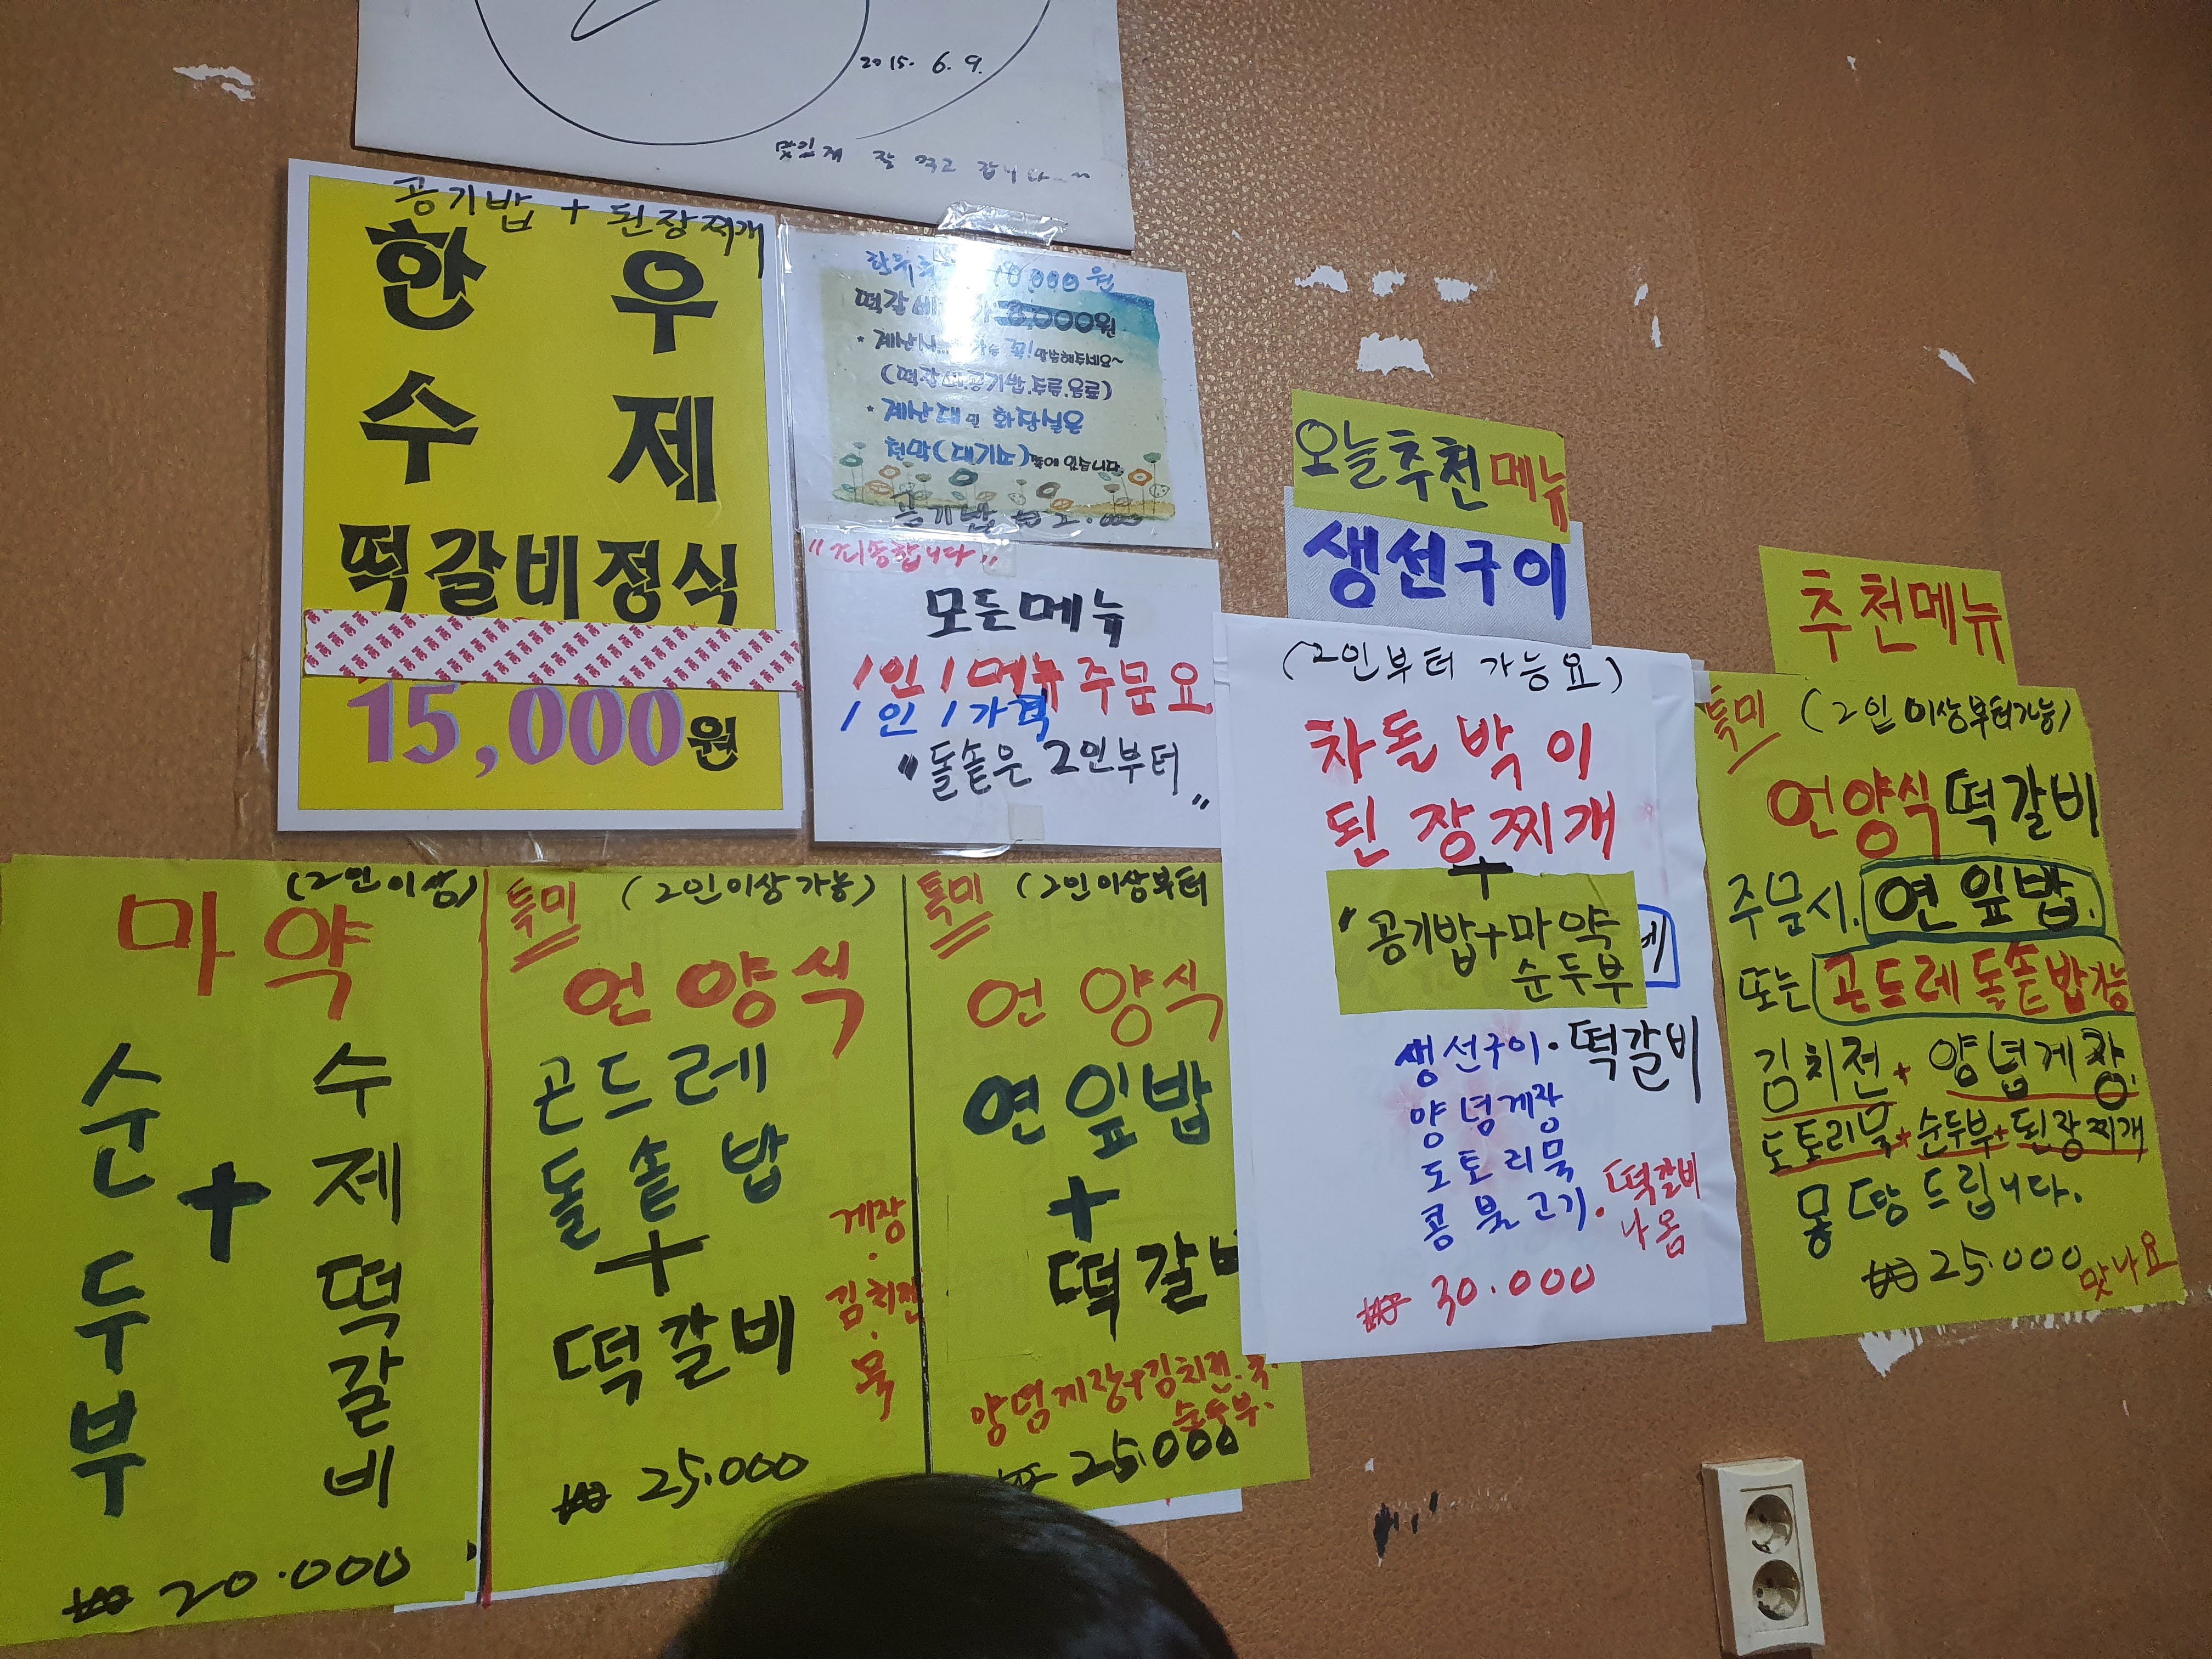 2015. 6. 9.
맛있게 잘 먹고 갑니다~~
공기밥 + 된장찌개
한우
수제
떡갈비정식
15,000원
000원
떡갈비
8,000원
꼭! 말씀해주세요~
(떡갈비.공기밥.주류.음료)
* 계산대 및 화장실은
천막(대기소)쪽에 있습니다.
공기밥 ₩ 2.000
"죄송합니다"
모든메뉴
1인 1메뉴 주문요
1인 1가격
"돌솥은 2인부터"
오늘추천메뉴
생선구이
(2인부터 가능요)
차돌박이
된장찌개
+
"공기밥+마약
순두부
생선구이·떡갈비
양념게장
도토리묵
콩불고기·떡갈비
나옴
₩ 30.000
추천메뉴
특미 (2인 이상부터가능)
언양식떡갈비
주문시. 연잎밥.
또는 곤드레돌솥밥가능
김치전+양념게장.
도토리묵+순두부+된장찌개
몽땅드립니다.
₩ 25.000
맛나요
(2인이상)
마약
순두부
+
수제떡갈비
₩ 20.000
특미 (2인이상가능)
언양식
곤드레
돌솥밥
+
떡갈비
게장
·
김치전
·
묵
₩ 25.000
특미 (2인이상부터
언양식
연잎밥
+
떡갈비
양념게장+김치전.묵.
순두부.
₩ 25.000